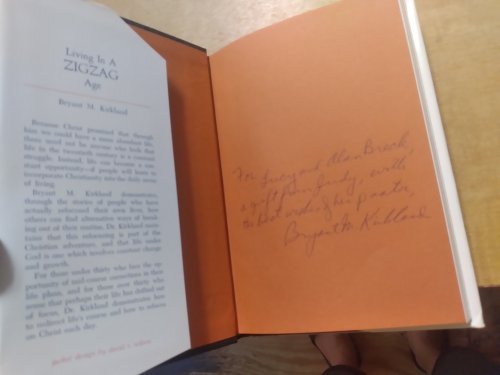 Living In A
ZIGZAG
Age
Bryant M. Kirkland
Because Christ promised that through
him we could have a more abundant life,
there need not be anyone who feels that
life in the twentieth century is a constant
struggle. Instead, life can become a con-
stant opportunity—if people will learn to
incorporate Christianity into the daily access
of living.
Bryant M. Kirkland demonstrates,
through the stories of people who have
actually refocused their own lives, how
others can find alternative ways of break-
ing out of their routine. Dr. Kirkland main-
tains that this refocusing is part of the
Christian adventure, and that life under
God is one which involves constant change
and growth.
For those under thirty who face the op-
portunity of mid-course corrections in their
life plans, and for those over thirty who
sense that perhaps their life has drifted out
of focus, Dr. Kirkland demonstrates how
to redirect life's course and how to refocus
on Christ each day.
jacket design by david r.
For Lucy and Alan Brook,
a gift from Judy, with
the best wishes of her pastor,
Bryant M. Kirkland